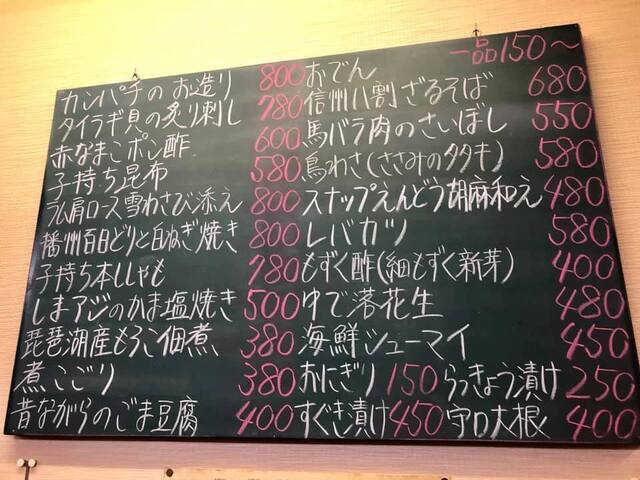 カンパチのお造り 800
タイラギ貝の炙り刺し 780
赤なまこポン酢 600
子持ち昆布 580
ラム肩ロース雪わさび添え 800
播州百日どりと白ねぎ焼き 800
子持ち本ししゃも 780
しまアジのかま塩焼き 500
琵琶湖産もろこ佃煮 380
煮こごり 380
昔ながらのごま豆腐 400
おでん 一品150〜
信州八割ざるそば 680
馬バラ肉のさいぼし 550
鳥わさ(ささみのタタキ) 580
スナップえんどう胡麻和え 480
レバカツ 580
もずく酢(細もずく新芽) 400
ゆで落花生 480
海鮮シューマイ 450
おにぎり 150 らっきょう漬け 250
すぐき漬け 450 守口大根 400